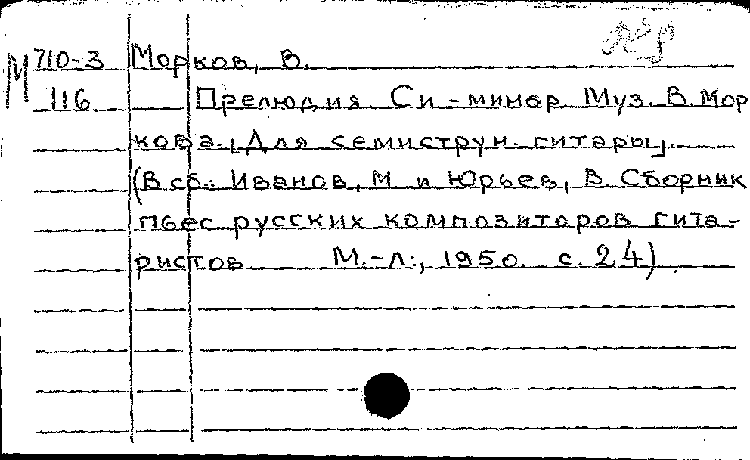 М 710-3 Морков, В.
116 Прелюдия Си-минор Муз. В. Мор
кова. [Для семиструн. гитары].
(В сб.: Иванов, М. и Юрьев, В. Сборник
пьес русских композиторов гита-
ристов М.-Л., 1950. с. 24)